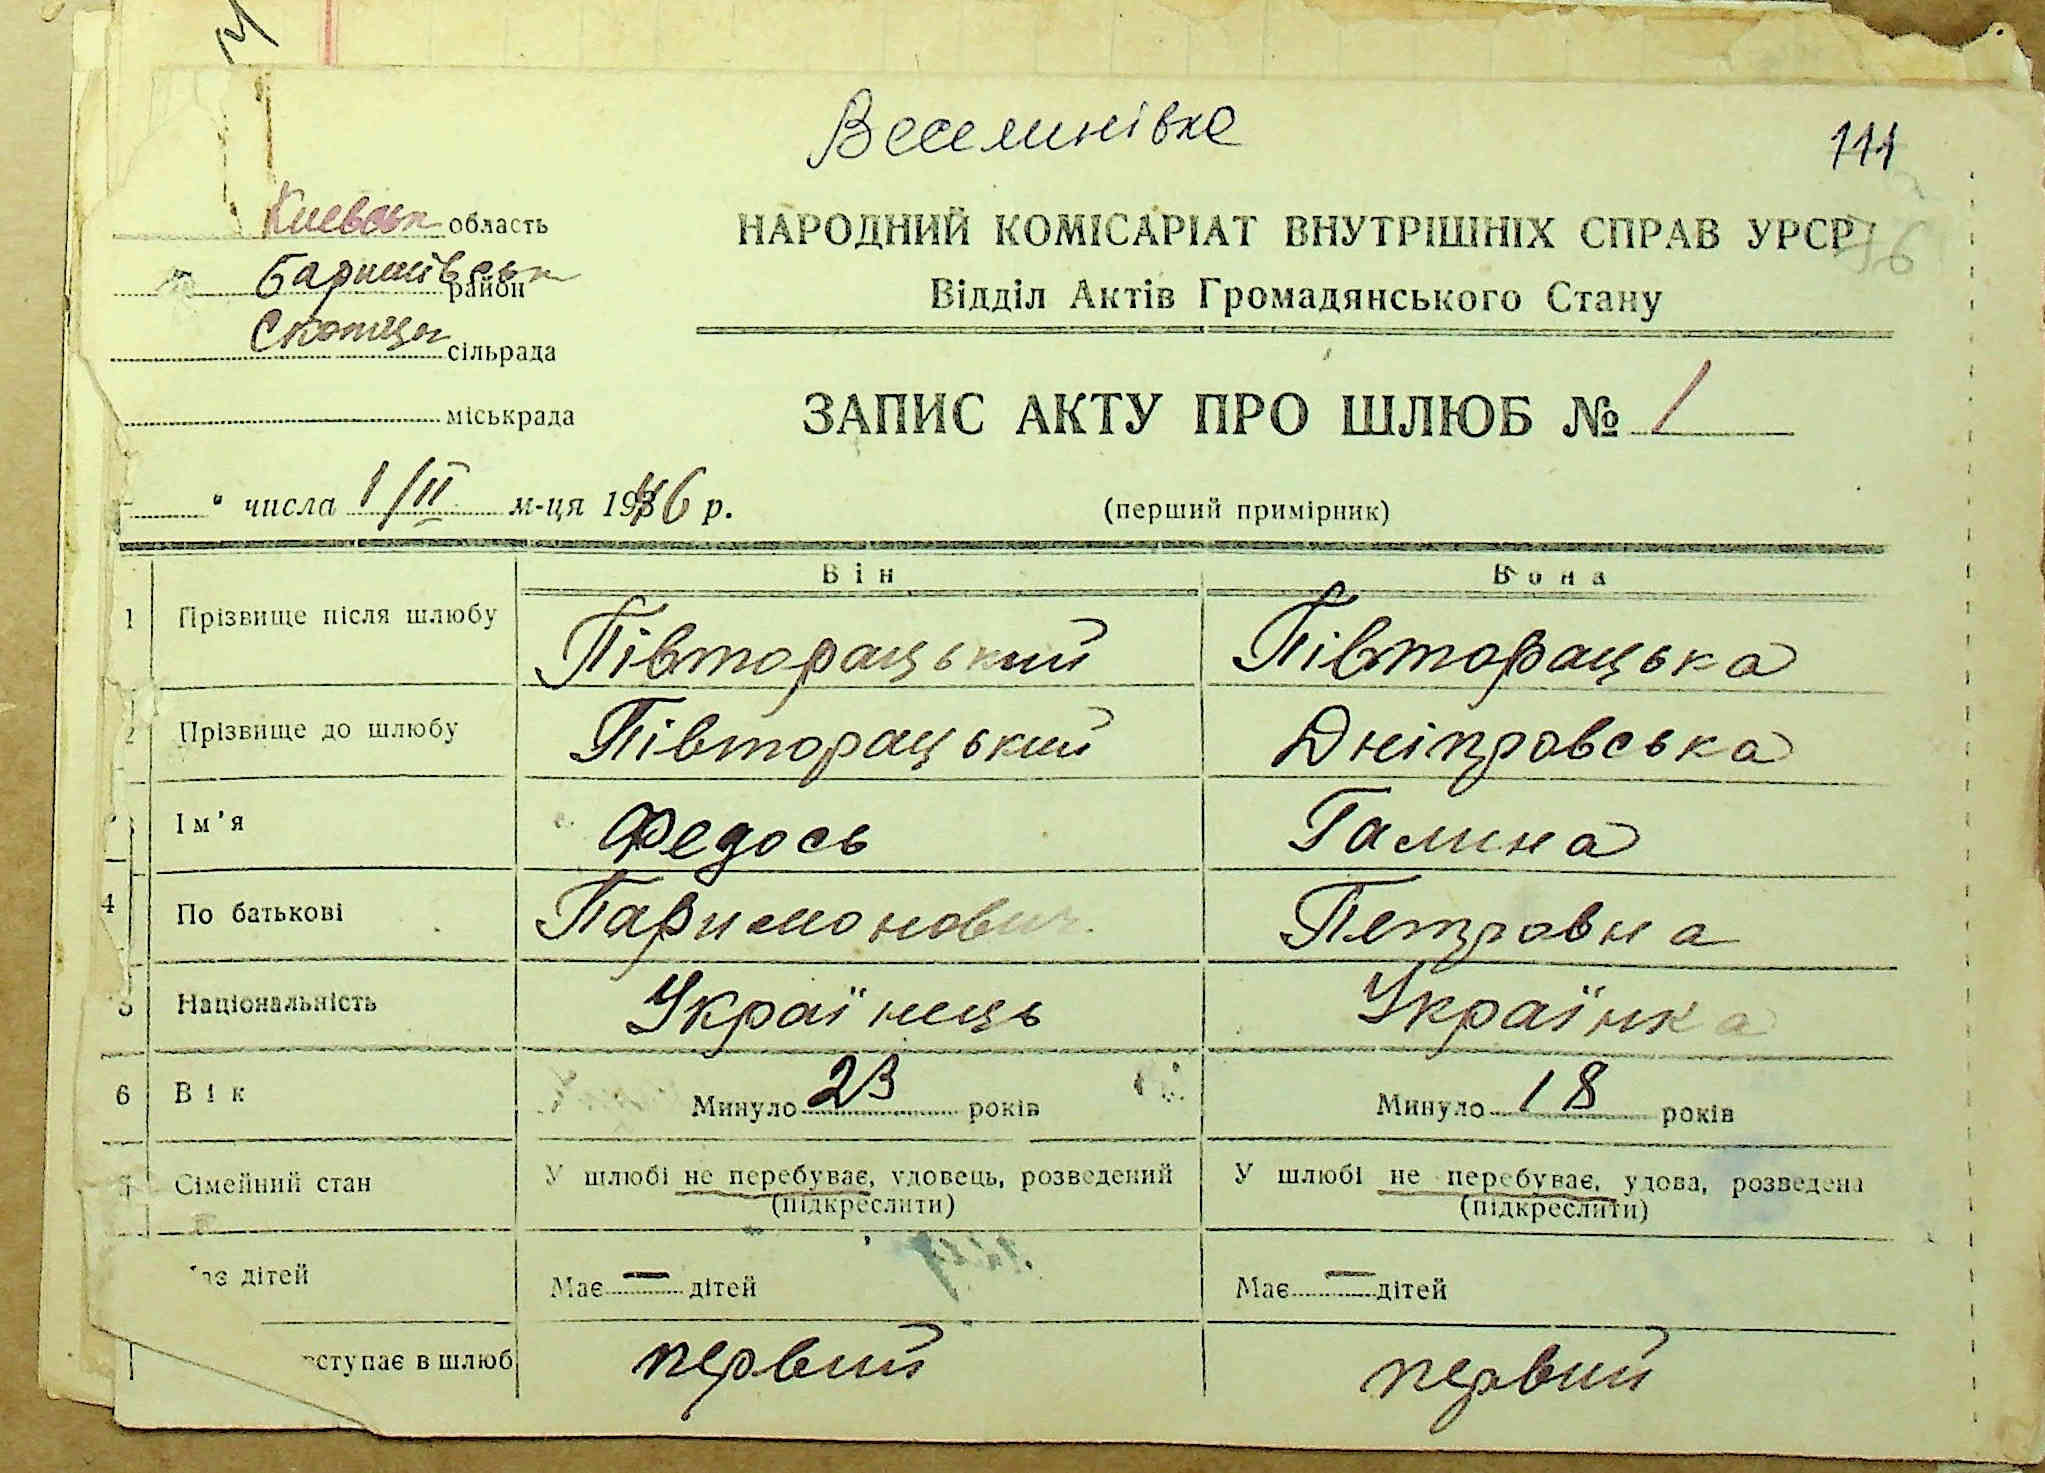 Веселинівка
111
Киевськ область
76
Баришівськ район
сільрада
міськрада
НАРОДНИЙ КОМІСАРІАТ ВНУТРІШНІХ СПРАВ УРСР
Відділ Актів Громадянського Стану
ЗАПИС АКТУ ПРО ШЛЮБ № 1
" числа 1/II м-ця 1946 р.
(перший примірник)
Він Вона
1 Прізвище після шлюбу Півторацький Півторацька
2 Прізвище до шлюбу Півторацький Дніпровська
Ім'я Федось Галина
4 По батькові Паримонович Петровна
5 Національність Українець Українка
6 Вік Минуло 23 років Минуло 18 років
Сімейний стан У шлюбі не перебуває, удовець, розведений У шлюбі не перебуває, удова, розведена
(підкреслити) (підкреслити)
дітей Має — дітей Має — дітей
вступає в шлюб первий первий